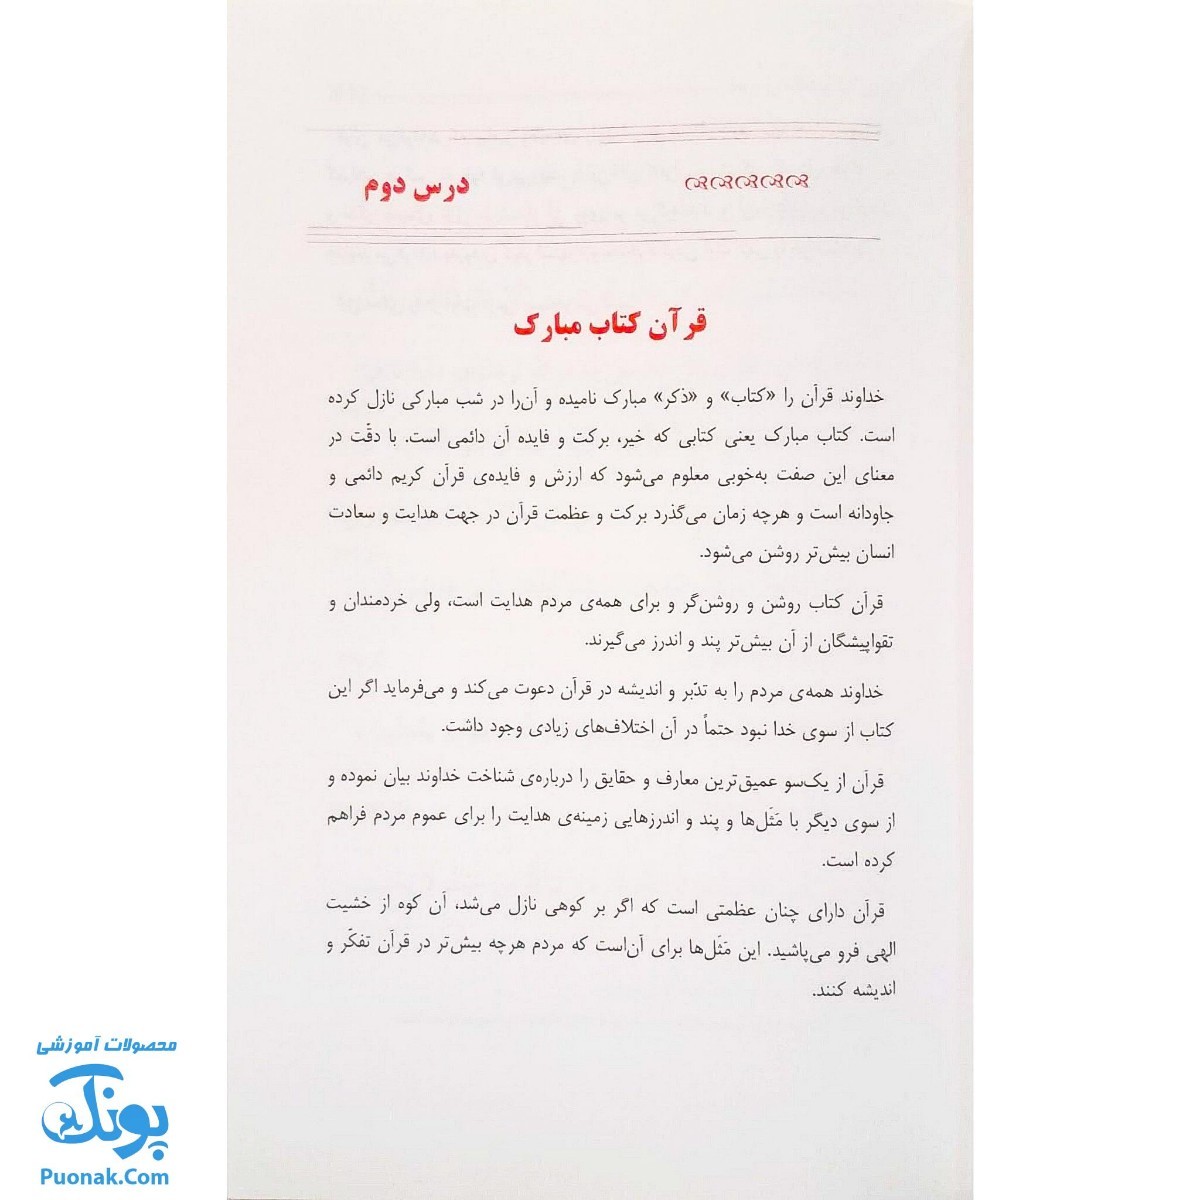 درس دوم
قرآن کتاب مبارک
خداوند قرآن را «کتاب» و «ذکر» مبارک نامیده و آن‌را در شب مبارکی نازل کرده
است. کتاب مبارک یعنی کتابی که خیر، برکت و فایده آن دائمی است. با دقّت در
معنای این صفت به‌خوبی معلوم می‌شود که ارزش و فایده‌ی قرآن کریم دائمی و
جاودانه است و هرچه زمان می‌گذرد برکت و عظمت قرآن در جهت هدایت و سعادت
انسان بیش‌تر روشن می‌شود.
قرآن کتاب روشن و روشن‌گر و برای همه‌ی مردم هدایت است، ولی خردمندان و
تقواپیشگان از آن بیش‌تر پند و اندرز می‌گیرند.
خداوند همه‌ی مردم را به تدّبر و اندیشه در قرآن دعوت می‌کند و می‌فرماید اگر این
کتاب از سوی خدا نبود حتماً در آن اختلاف‌های زیادی وجود داشت.
قرآن از یک‌سو عمیق‌ترین معارف و حقایق را درباره‌ی شناخت خداوند بیان نموده و
از سوی دیگر با مَثَل‌ها و پند و اندرزهایی زمینه‌ی هدایت را برای عموم مردم فراهم
کرده است.
قرآن دارای چنان عظمتی است که اگر بر کوهی نازل می‌شد، آن کوه از خشیت
الهی فرو می‌پاشید. این مَثَل‌ها برای آن‌است که مردم هرچه بیش‌تر در قرآن تفکّر و
اندیشه کنند.
محصولات آموزشی
پونک
Puonak.Com